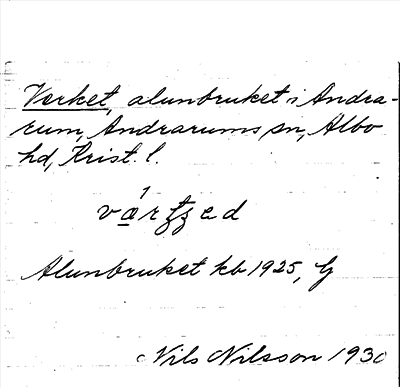 Verket, alunbruket i Andra-
rum, Andrarums sn, Albo
hd, Krist. l.
Alunbruket kb 1925, G
Nils Nilsson 1930